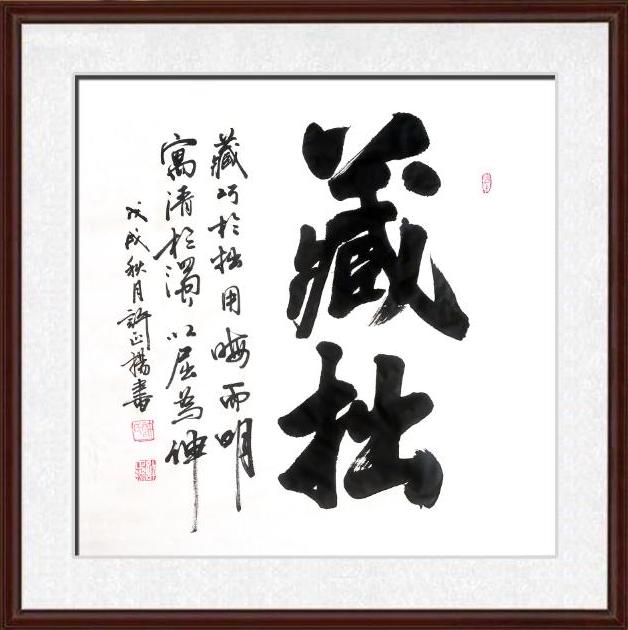 藏拙
藏巧於拙用晦而明
寓清於濁以屈為伸
戊戌秋月許正楊書